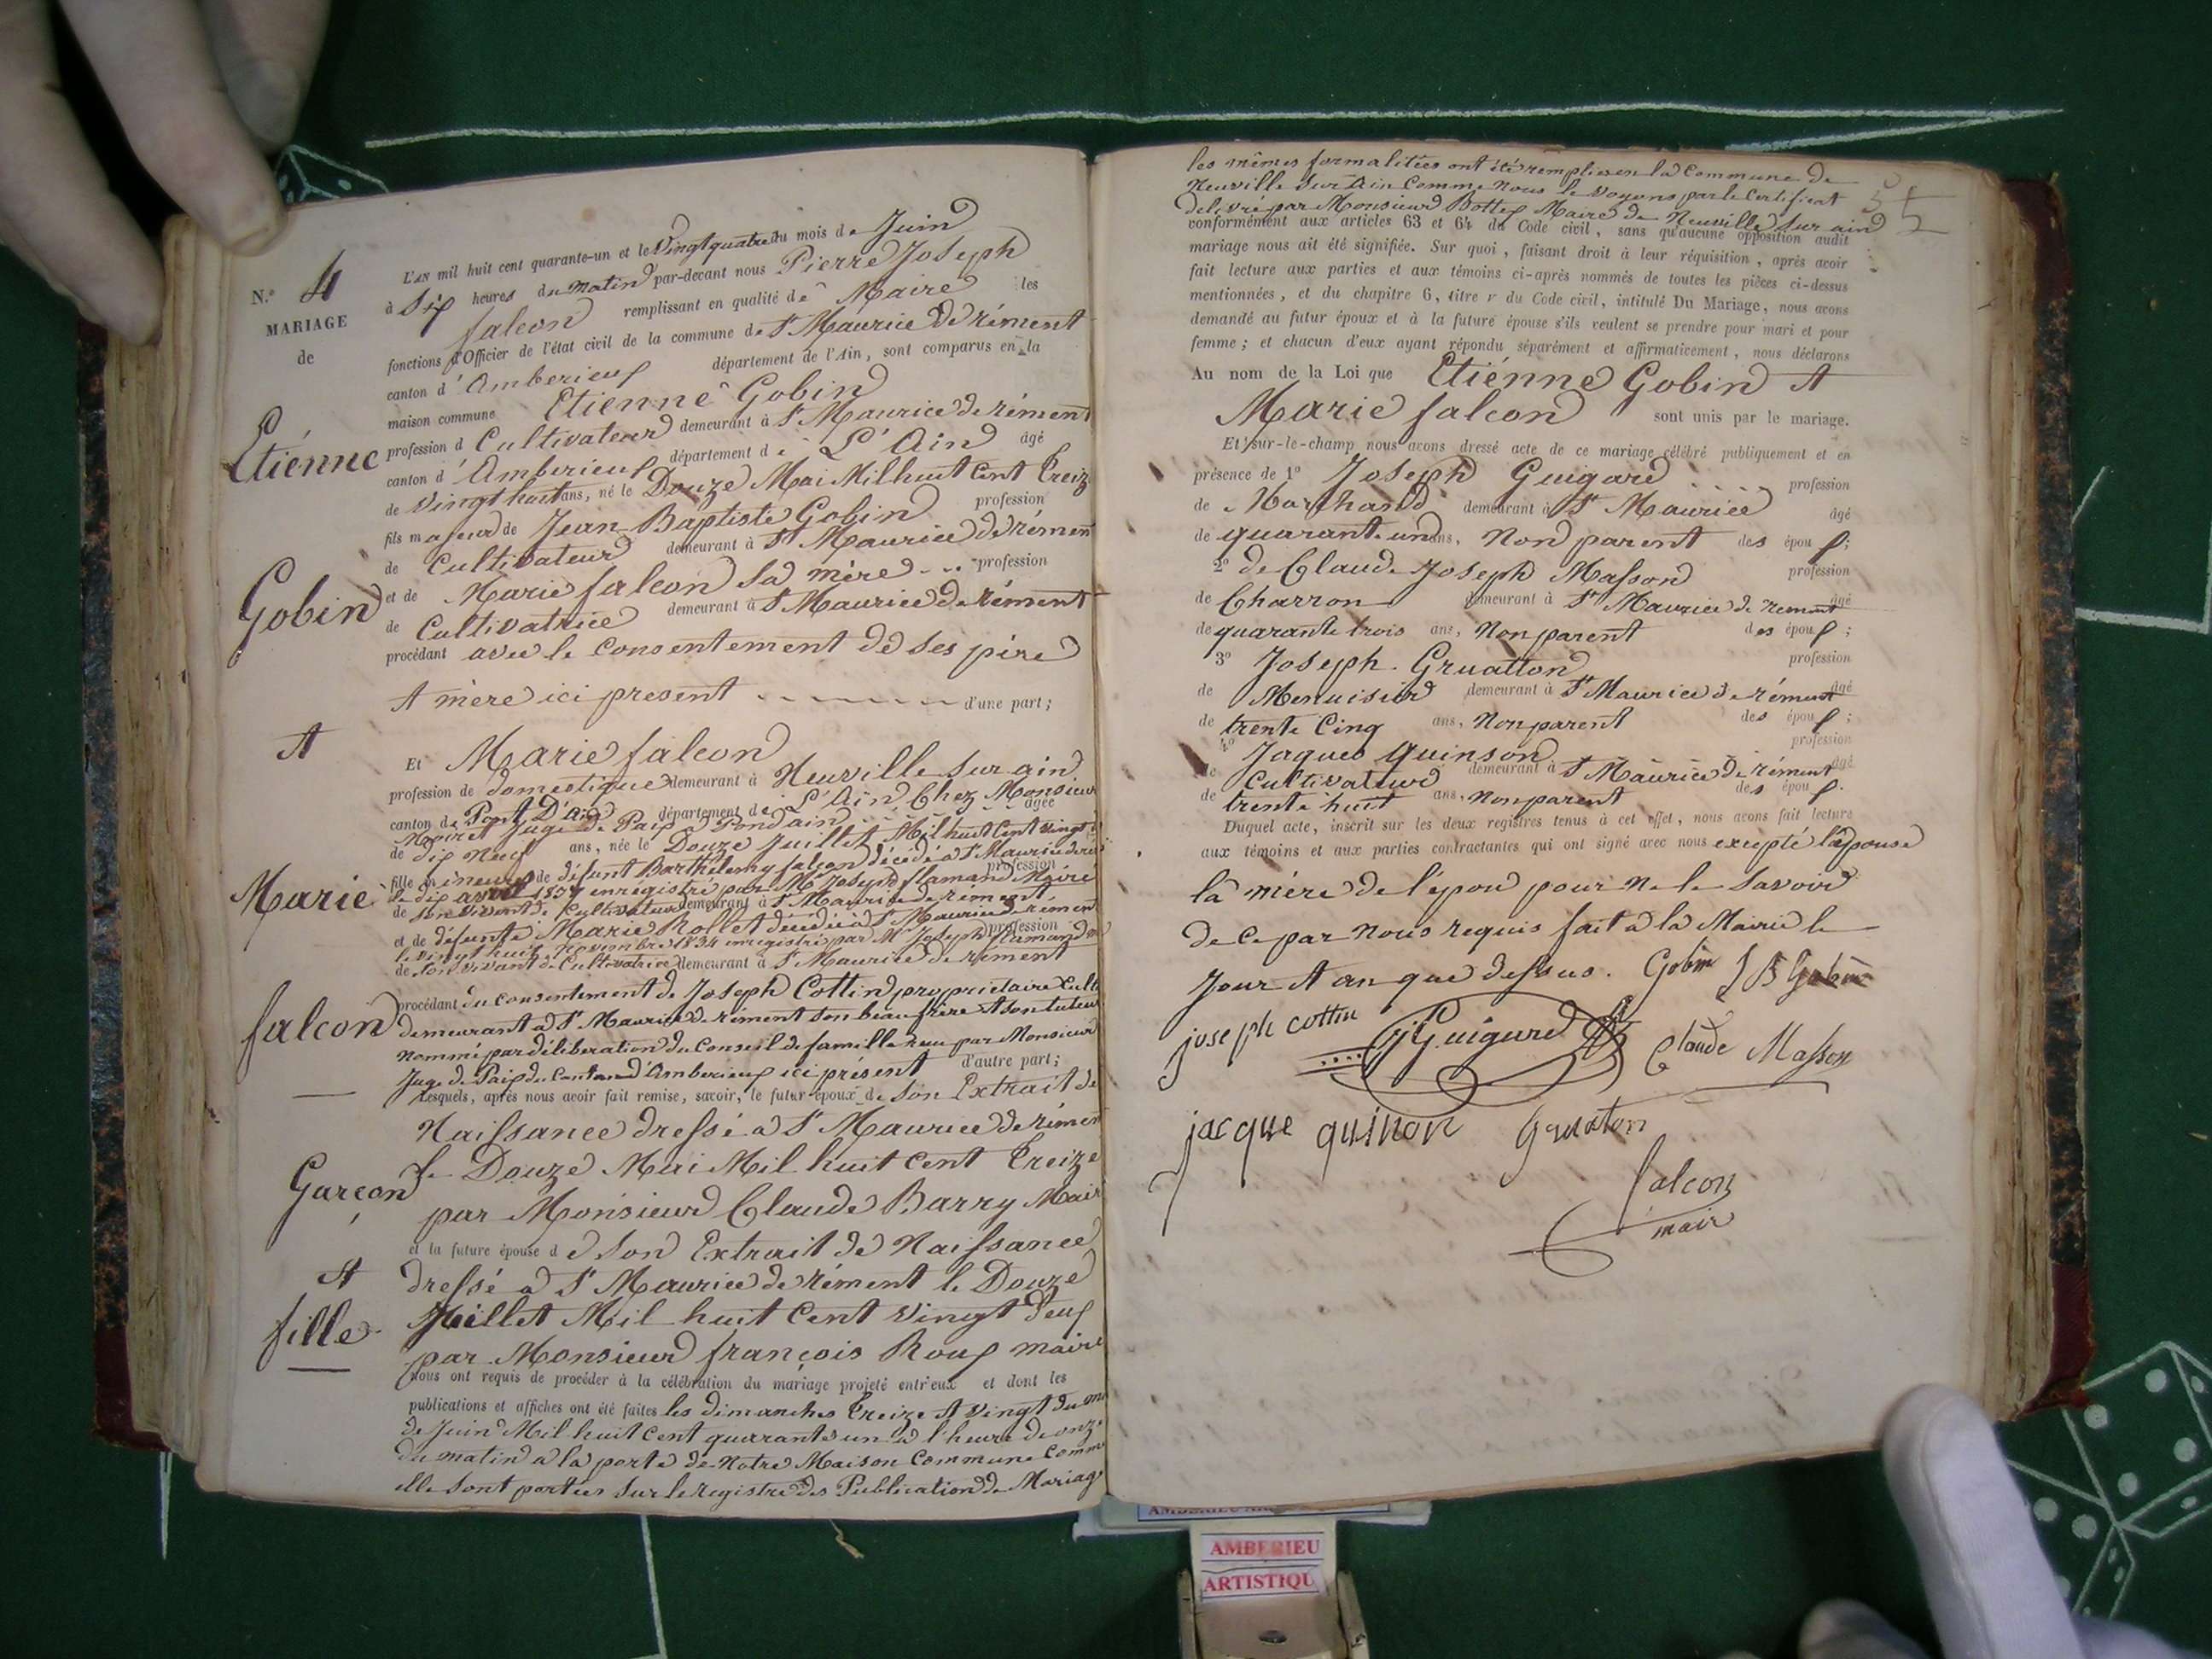 N.o 4
MARIAGE
de
Etiénne
Gobin
Et
Marie
falcon
Garçon
Et
fille
L'AN mil huit cent quarante-un et le Vingt quatre du mois de Juin
à Six heures du Matin par-devant nous Pierre Joseph
falcon remplissant en qualité de Maire les
fonctions d'Officier de l'état civil de la commune de St Maurice de rément
canton d'Amberieux département de l'Ain, sont comparus en la
maison commune Etienne Gobin
profession d Cultivateur demeurant à St Maurice de rément
canton d'Amberieux département de L'Ain âgé
de Vingt huit ans, né le Douze Mai Mil huit Cent Treize
fils majeur de Jean Baptiste Gobin profession
de Cultivateur demeurant à St Maurice de rément
et de Marie falcon Sa mère profession
de Cultivatrice demeurant à St Maurice de rément
procédant avec le consentement de Ses père
Et mère ici present d'une part;
Et Marie falcon
profession de domestique demeurant à Neuville Sur ain
canton de Pont D'ain département de L'Ain Chez Monsieur
Moiret Juge de Paix à Pondain âgée
de dix Neuf ans, née le Douze Juillet Mil huit Cent vingt
fille mineure de défunt Barthélemy falcon décédé à St Maurice de
le dix avril 1837 enregistré par Mr Joseph flamand Maire profession
de Son Vivant de Cultivateur demeurant à St Maurice de rément
et de défunte Marie Rollet décédée à St Maurice de rément
le vingt huit Novembre 1834 enregistré par Mr Joseph flamand profession
de Son vivant de Cultivatrice demeurant à St Maurice de rément
procédant du consentement de Joseph Cottin propriétaire Cult
demeurant à St Maurice de rément Son beau frère Et Son tuteur
Nommé par déliberation du Conseil de famille par Monsieur
Juge de Paix du Canton d'Amberieux ici présent d'autre part;
Lesquels, après nous avoir fait remise, savoir, le futur époux de Son Extrait de
Naissance dressé à St Maurice de rément
le Douze Mai Mil huit Cent Treize
par Monsieur Claude Barry Maire
et la future épouse d e Son Extrait de Naissance
dressé à St Maurice de rément le Douze
Juillet Mil huit Cent Vingt Deux
par Monsieur françois Roux maire
nous ont requis de procéder à la célébration du mariage projeté entr'eux et dont les
publications et affiches ont été faites les dimanches Treize Et vingt du
de Juin Mil huit Cent quarante un à l'heure de onze
du matin à la porte de Notre Maison Commune Comme
elle Sont portées Sur le registre des Publication de Mariage
les mêmes formalitées ont été remplies en la Commune de
Neuville Sur Ain Comme Nous le Voyons par le Certificat
delivré par Monsieur Bottex Maire de Neuville Sur ain
conformément aux articles 63 et 64 du Code civil, sans qu'aucune opposition audit
mariage nous ait été signifiée. Sur quoi, faisant droit à leur réquisition, après avoir
fait lecture aux parties et aux témoins ci-après nommés de toutes les pièces ci-dessus
mentionnées, et du chapitre 6, titre v du Code civil, intitulé Du Mariage, nous avons
demandé au futur époux et à la future épouse s'ils veulent se prendre pour mari et pour
femme; et chacun d'eux ayant répondu séparément et affirmativement, nous déclarons
Au nom de la Loi que Etiénne Gobin Et
Marie falcon sont unis par le mariage.
Et sur-le-champ nous avons dressé acte de ce mariage célébré publiquement et en
présence de 1o Joseph Guigard profession
de Marchand demeurant à St Maurice âgé
de quarante un ans, Non parent des époux;
2o de Claude Joseph Masson profession
de Charron demeurant à St Maurice de rement âgé
de quarante trois ans, Non parent des époux;
3o Joseph Gruatton profession
de Menuisier demeurant à St Maurice de rément âgé
de trente Cinq ans, Non parent des époux;
4o Jaques Quinson profession
de Cultivateur demeurant à St Maurice de rément âgé
de trente huit ans, Non parent des époux.
Duquel acte, inscrit sur les deux registres tenus à cet effet, nous avons fait lecture
aux témoins et aux parties contractantes qui ont signé avec nous excepté l'épouse
la mère de l'époux pour Ne le Savoir
de ce par Nous requis fait à la Mairie le
Jour Et an que dessus. Gobin J B Gobin
joseph cottin J Guigard Claude Masson
jacque quinon Gruaton
falcon
mair
AMBERIEU
ARTISTIQU